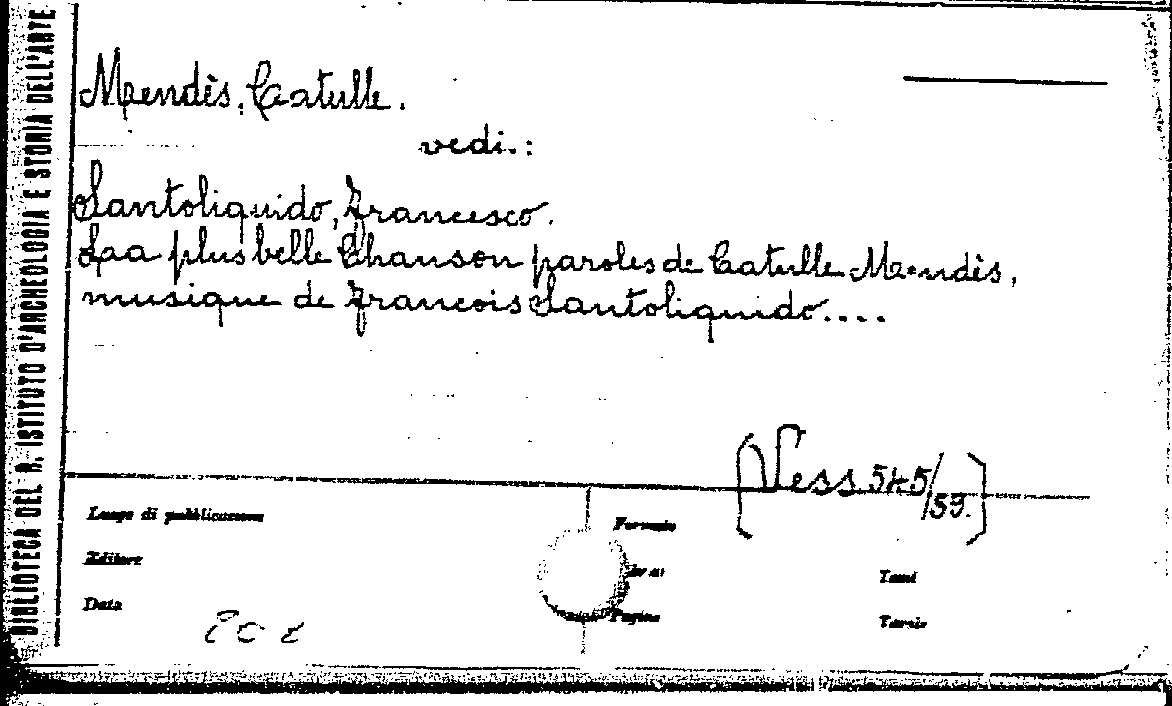 BIBLIOTECA DEL R. ISTITUTO D'ARCHEOLOGIA E STORIA DELL'ARTE
Mendès, Catulle.
vedi.:
Santoliquido, Francesco.
La plus belle Chanson paroles de Catulle Mendès,
musique de Francois Santoliquido....
[Vess. 545/59.]
Luogo di pubblicazione
Formato
Editore
Tomi
Data
Pagine
Tavole